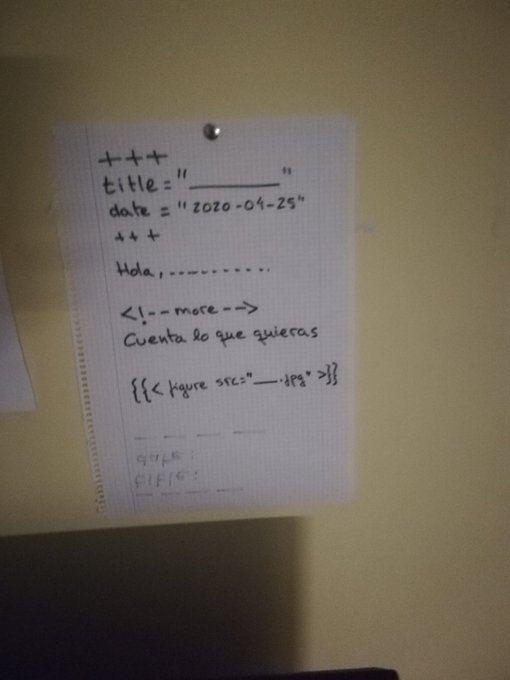 +++
title = "__________"
date = "2020-04-25"
+++
Hola, ----------
<!--more-->
Cuenta lo que quieras
{{< figure src="___.jpg" >}}